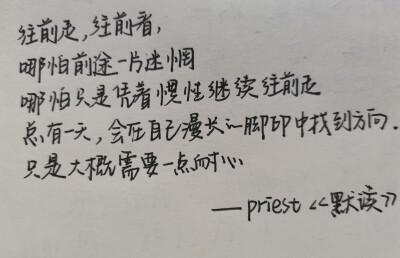 往前走,往前看,
哪怕前途一片迷惘
哪怕只是凭着惯性继续往前走
总有一天,会在自己漫长的脚印中找到方向.
只是大概需要一点耐心
——priest《默读》